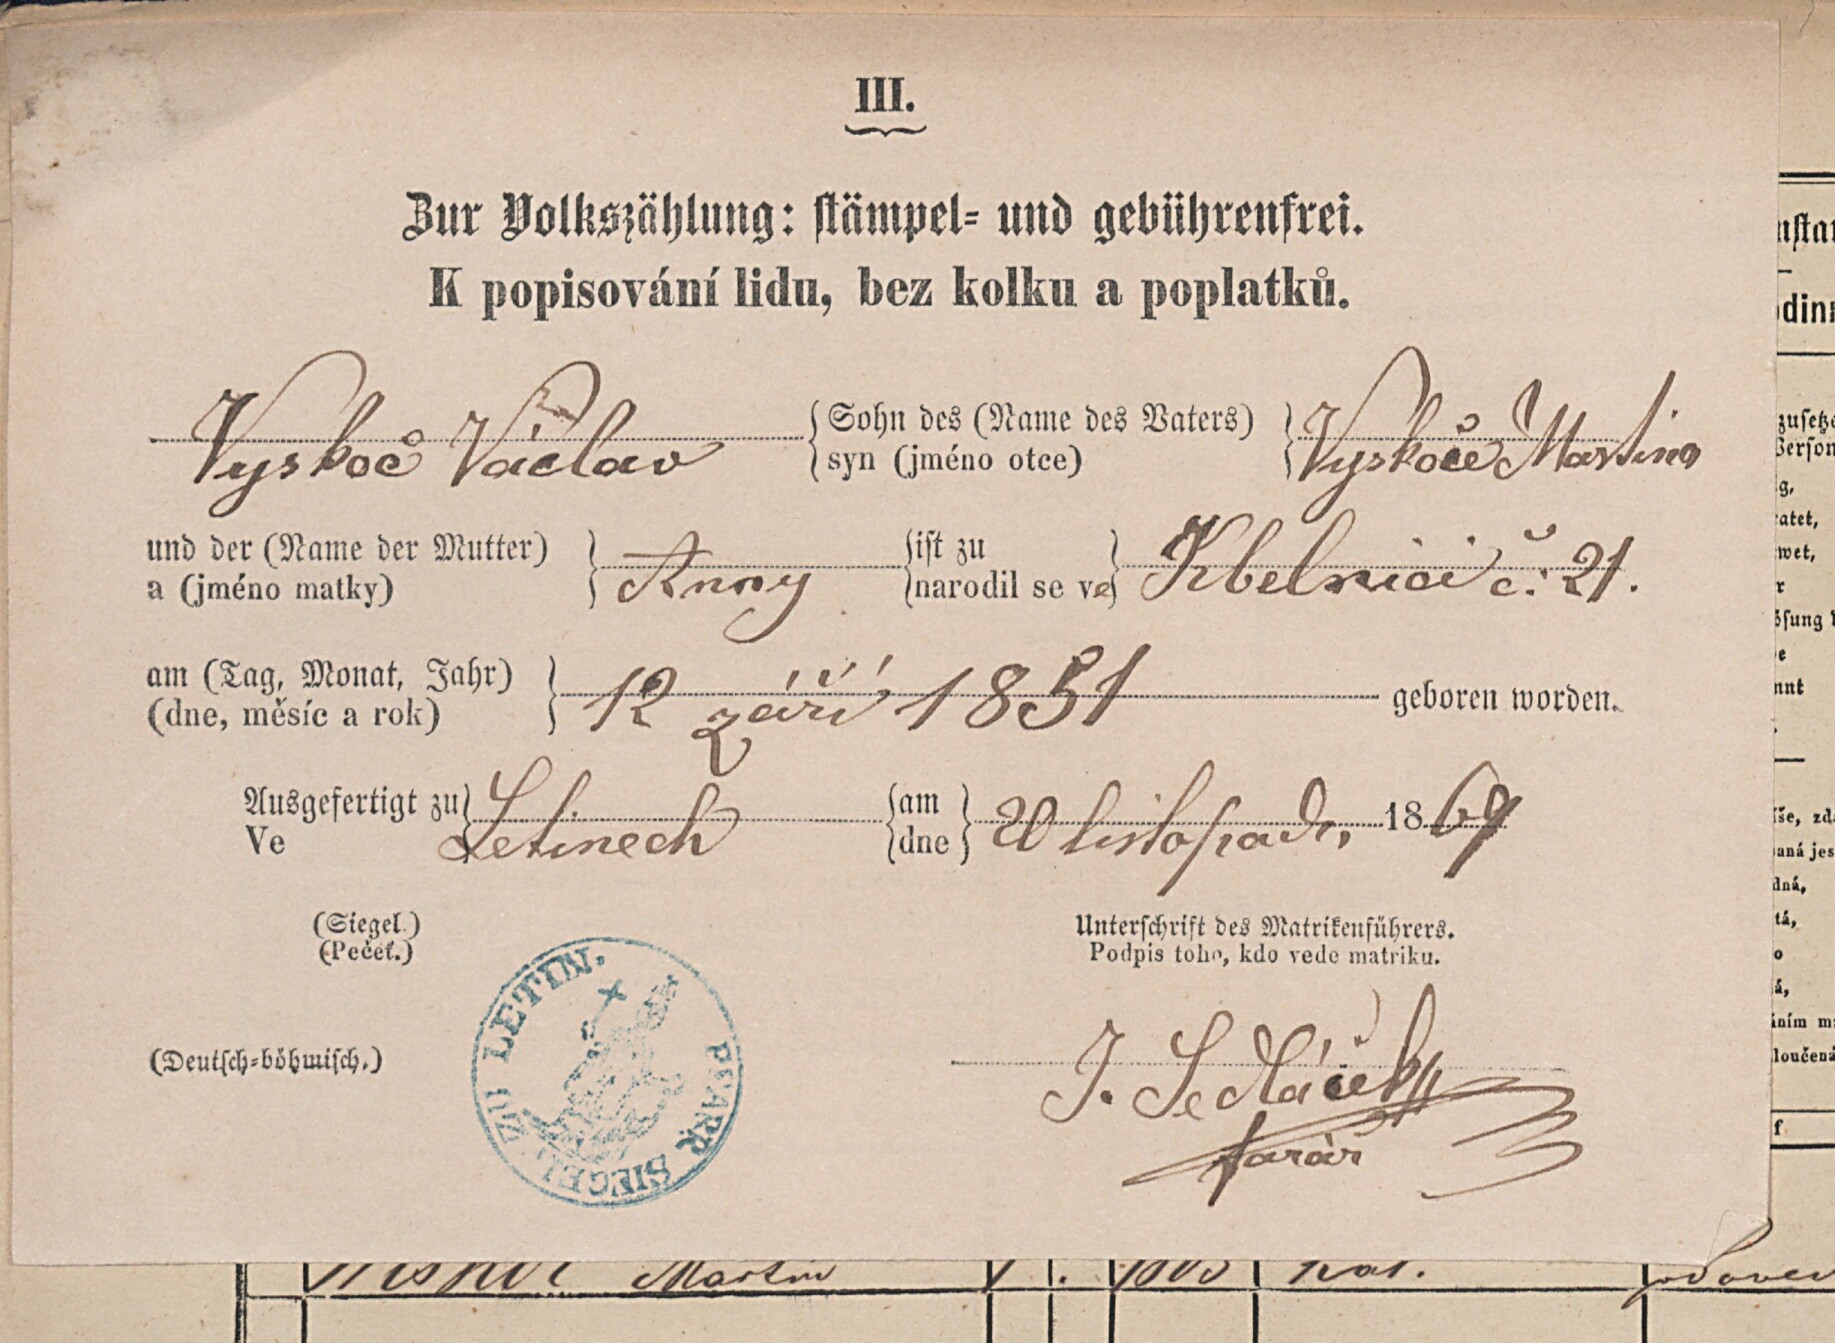 III.
Zur Volkszählung: stämpel- und gebührenfrei.
K popisování lidu, bez kolku a poplatků.
Vyskoč Václav { Sohn des (Name des Vaters) syn (jméno otce) { Vyskoče Martina
und der (Name der Mutter) a (jméno matky) } Anny { ist zu narodil se ve } Kbelnici č. 21.
am (Tag, Monat, Jahr) (dne, měsíc a rok) } 12 září 1851 geboren worden.
Ausgefertigt zu Ve } Letinech { am dne } 20 listopadu, 1869
(Siegel.)
(Pečeť.)
Unterschrift des Matrikenführers.
Podpis toho, kdo vede matriku.
PFARR SIEGEL ZU LETIN.
(Deutsch-böhmisch.)
J. Sedláček
farář
Martin